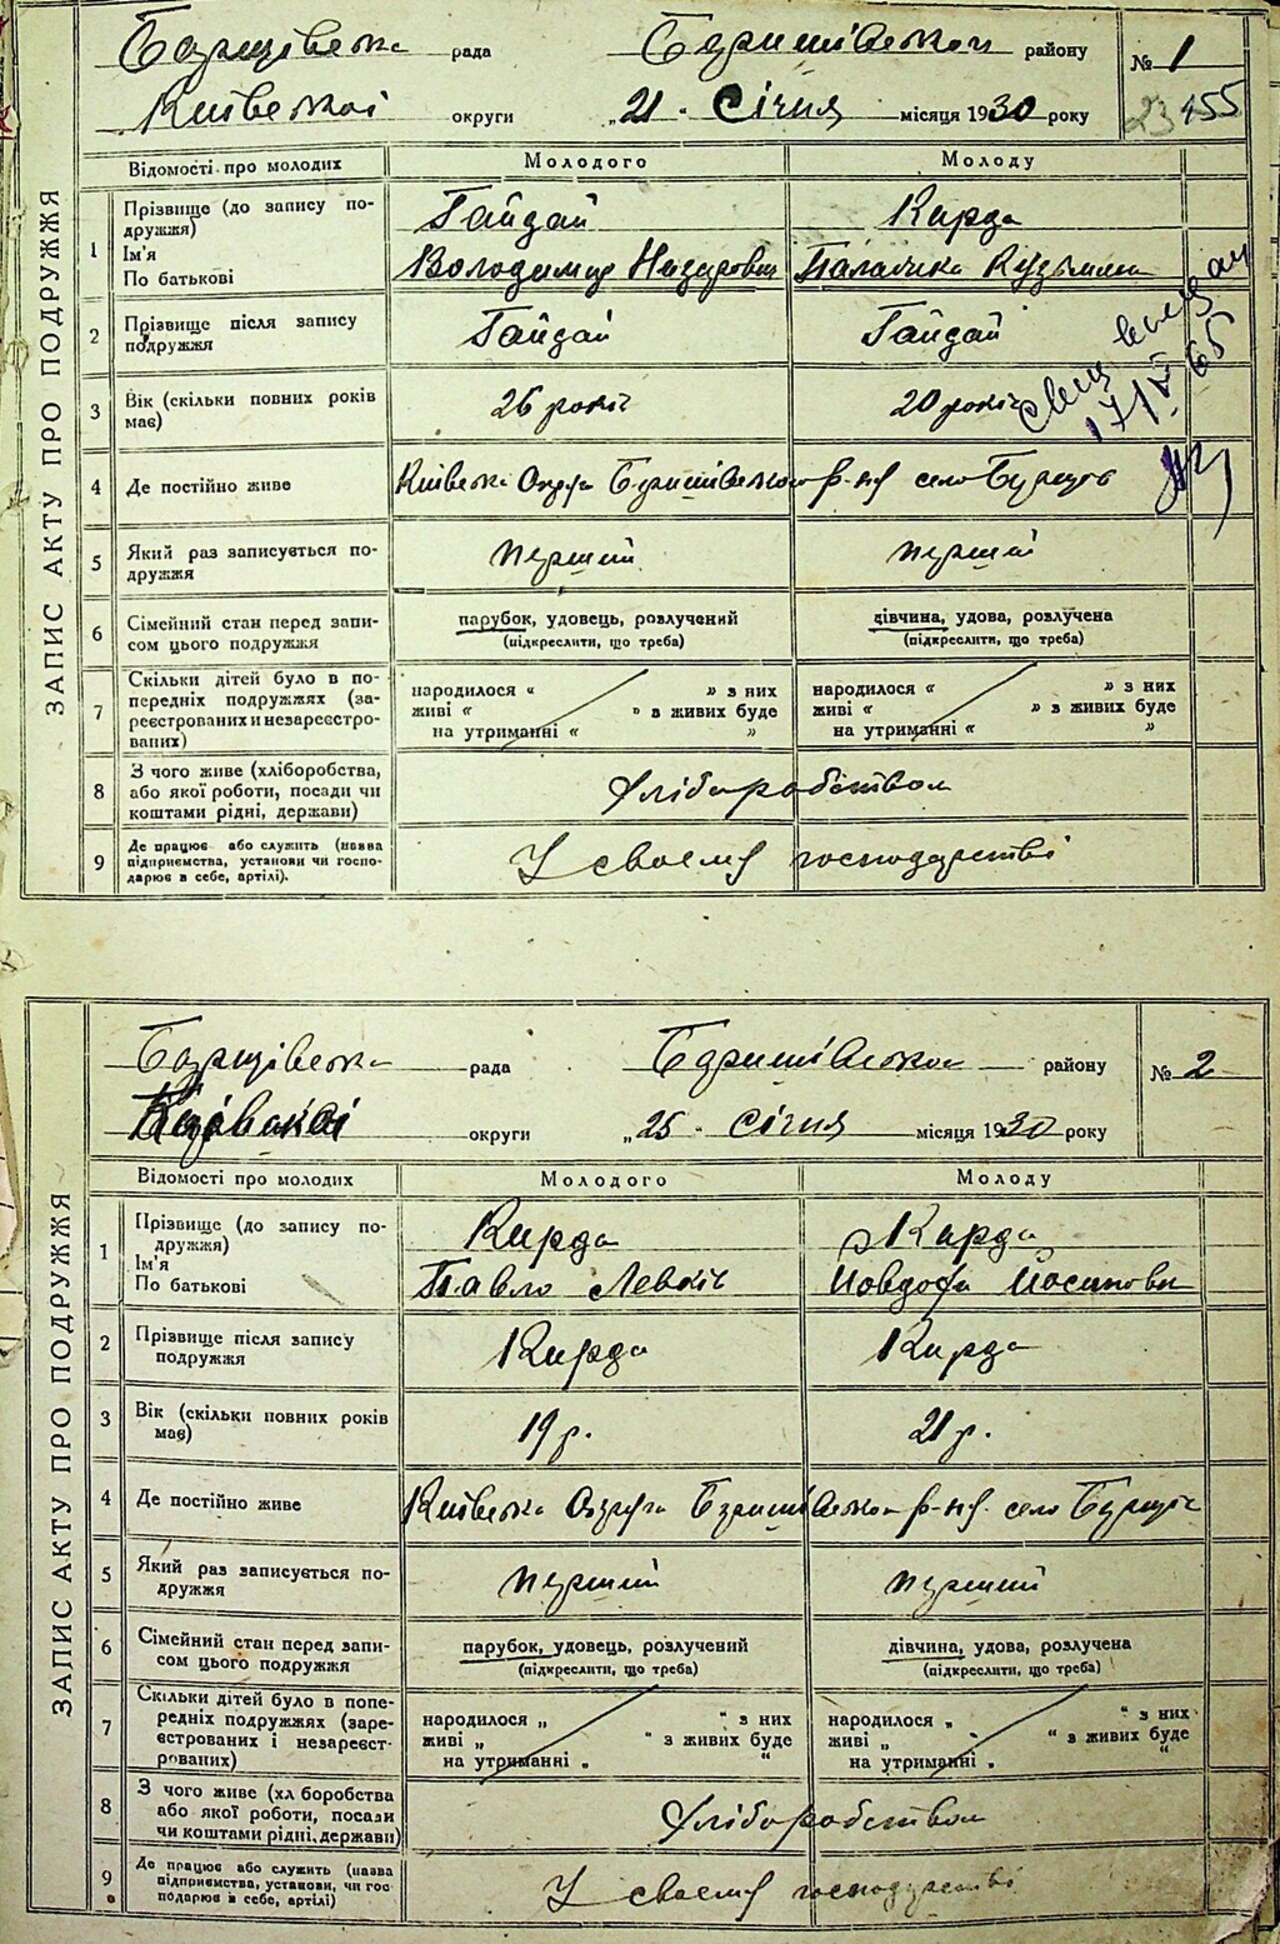 ЗАПИС АКТУ ПРО ПОДРУЖЖЯ
Борщівська рада Баришівського району № 1
Київської округи „21" Січня місяця 1930 року
23 455
Відомості про молодих Молодого Молоду
1 Прізвище (до запису по-
дружжя) Гайдай Кирда
Ім'я
По батькові Володимир Назарович Палажка Кузьмина
2 Прізвище після запису
подружжя Гайдай Гайдай
3 Вік (скільки повних років
має) 26 років 20 років
17/V 65
4 Де постійно живе Київська Округа Баришівського р-ну село Борщів
5 Який раз записується по-
дружжя перший перший
6 Сімейний стан перед запи-
сом цього подружжя
парубок, удовець, розлучений дівчина, удова, розлучена
(підкреслити, що треба) (підкреслити, що треба)
7 Скільки дітей було в по-
передніх подружжях (за-
реєстрованих и незареєстро-
ваних)
народилося “ ” з них народилося “ ” з них
живі “ ” з живих буде живі “ ” з живих буде
на утриманні “ ” на утриманні “ ”
8 З чого живе (хліборобства,
або якої роботи, посади чи
коштами рідні, держави) Хліборобством
9 Де працює або служить (назва
підприємства, установи чи госпо-
дарює в себе, артілі). У своєму господарстві
ЗАПИС АКТУ ПРО ПОДРУЖЖЯ
Борщівська рада Баришівського району № 2
Київської округи „25" Січня місяця 1930 року
Відомості про молодих Молодого Молоду
1 Прізвище (до запису по-
дружжя) Кирда Кирда
Ім'я
По батькові Павло Левків Йовдоха Йосипова
2 Прізвище після запису
подружжя Кирда Кирда
3 Вік (скільки повних років
має) 19 р. 21 р.
4 Де постійно живе Київська Округа Баришівського р-ну село Борщів
5 Який раз записується по-
дружжя перший перший
6 Сімейний стан перед запи-
сом цього подружжя
парубок, удовець, розлучений дівчина, удова, розлучена
(підкреслити, що треба) (підкреслити, що треба)
7 Скільки дітей було в попе-
редніх подружжях (заре-
єстрованих і незареєст-
рованих)
народилося „ “ з них народилося „ “ з них
живі „ “ з живих буде живі „ “ з живих буде
на утриманні „ “ на утриманні „ “
8 З чого живе (хл боробства
або якої роботи, посади
чи коштами рідні, держави) Хліборобством
9 Де працює або служить (назва
підприємства, установи, чи гос
подарює в себе, артілі) У своєму господарстві